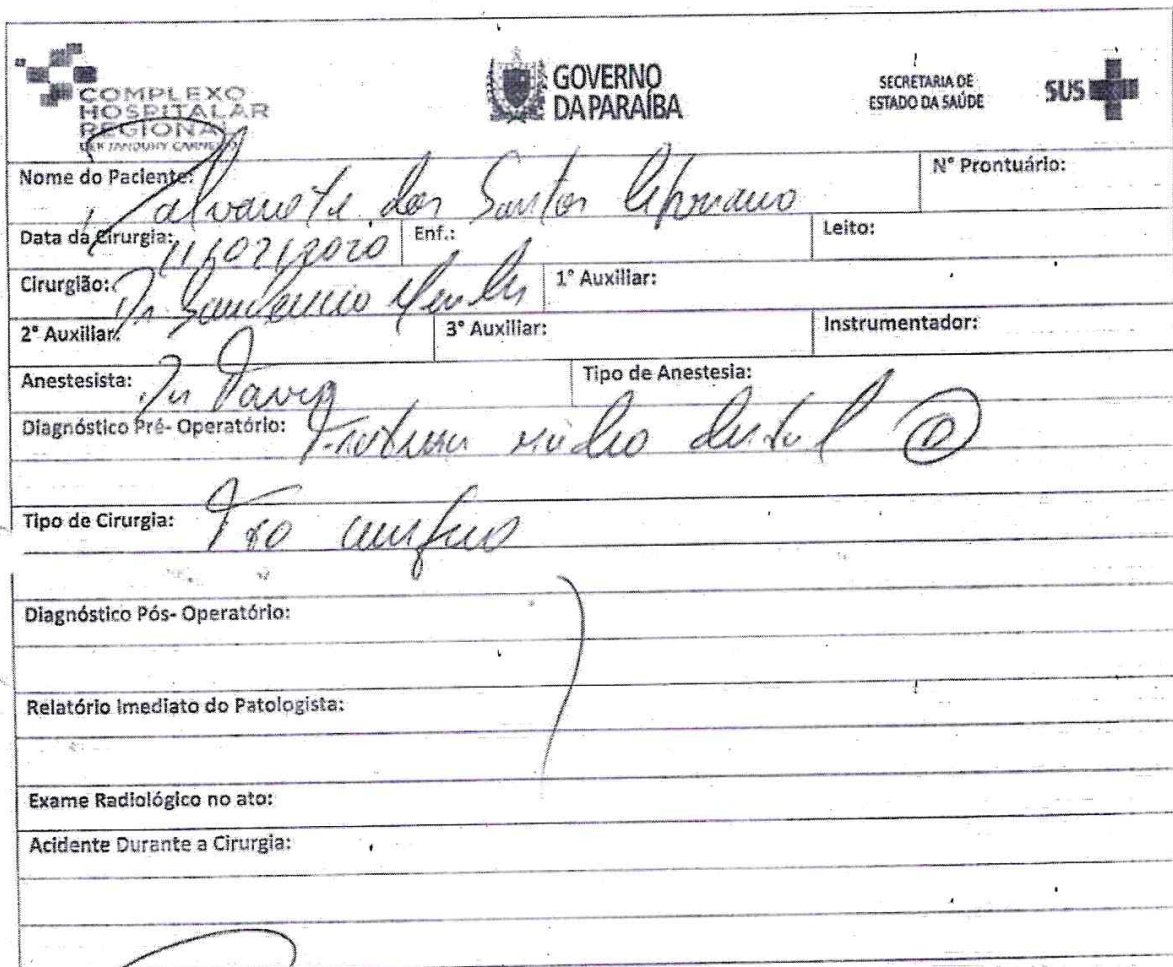 COMPLEXO
HOSPITALAR
REGIONAL
DEP. JANDUHY CARNEIRO
GOVERNO
DA PARAÍBA
SECRETARIA DE
ESTADO DA SAÚDE
SUS
Nome do Paciente: dos Santos
Nº Prontuário:
Data da Cirurgia: 11/02/2020 Enf.: Leito:
Cirurgião: Dr 1º Auxiliar:
2º Auxiliar: 3º Auxiliar: Instrumentador:
Anestesista: Dr Tipo de Anestesia:
Diagnóstico Pré- Operatório: Fratura rádio distal D
Tipo de Cirurgia:
Diagnóstico Pós- Operatório:
Relatório Imediato do Patologista:
Exame Radiológico no ato:
Acidente Durante a Cirurgia: